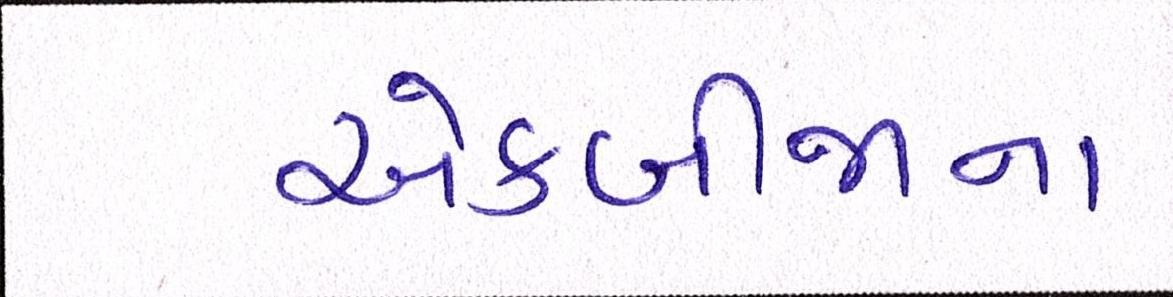 એકબીજાના